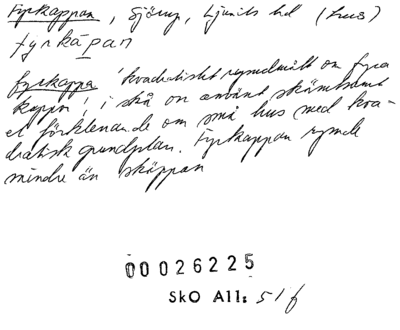 Fyrkappan, Sjörup, Ljunits hd (hus)
fyrkápan
fyrkappa 'kvadratiskt rymdmått om fyra
kappa', i skå on använt skämtsamt
el förklenande om små hus med kva-
dratisk grundplan. Fyrkappan rymde
mindre än skäppan
00026225
SkO All: 51 f